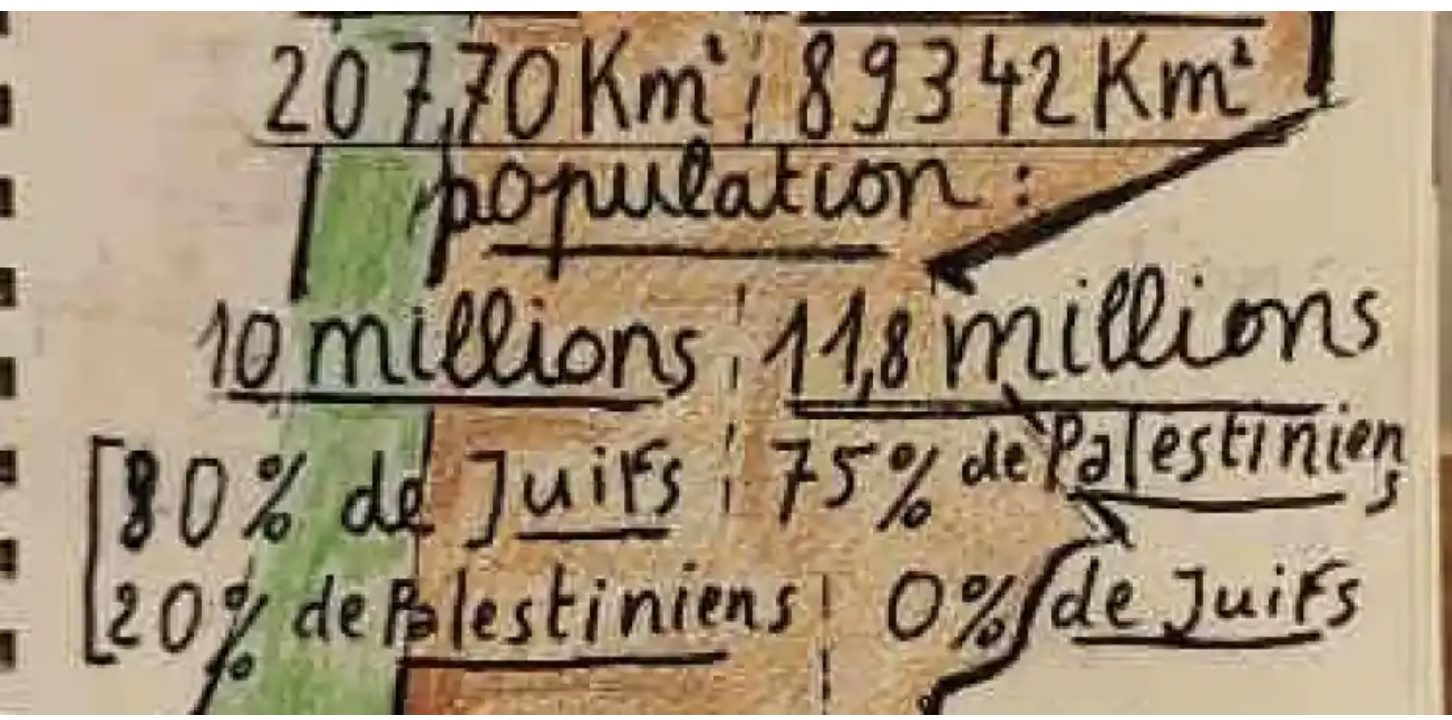 207,70 Km² ¦ 89342 Km²
population :
10 millions ¦ 11,8 millions
80% de Juifs ¦ 75% de Palestiniens
20% de Palestiniens ¦ 0% de Juifs